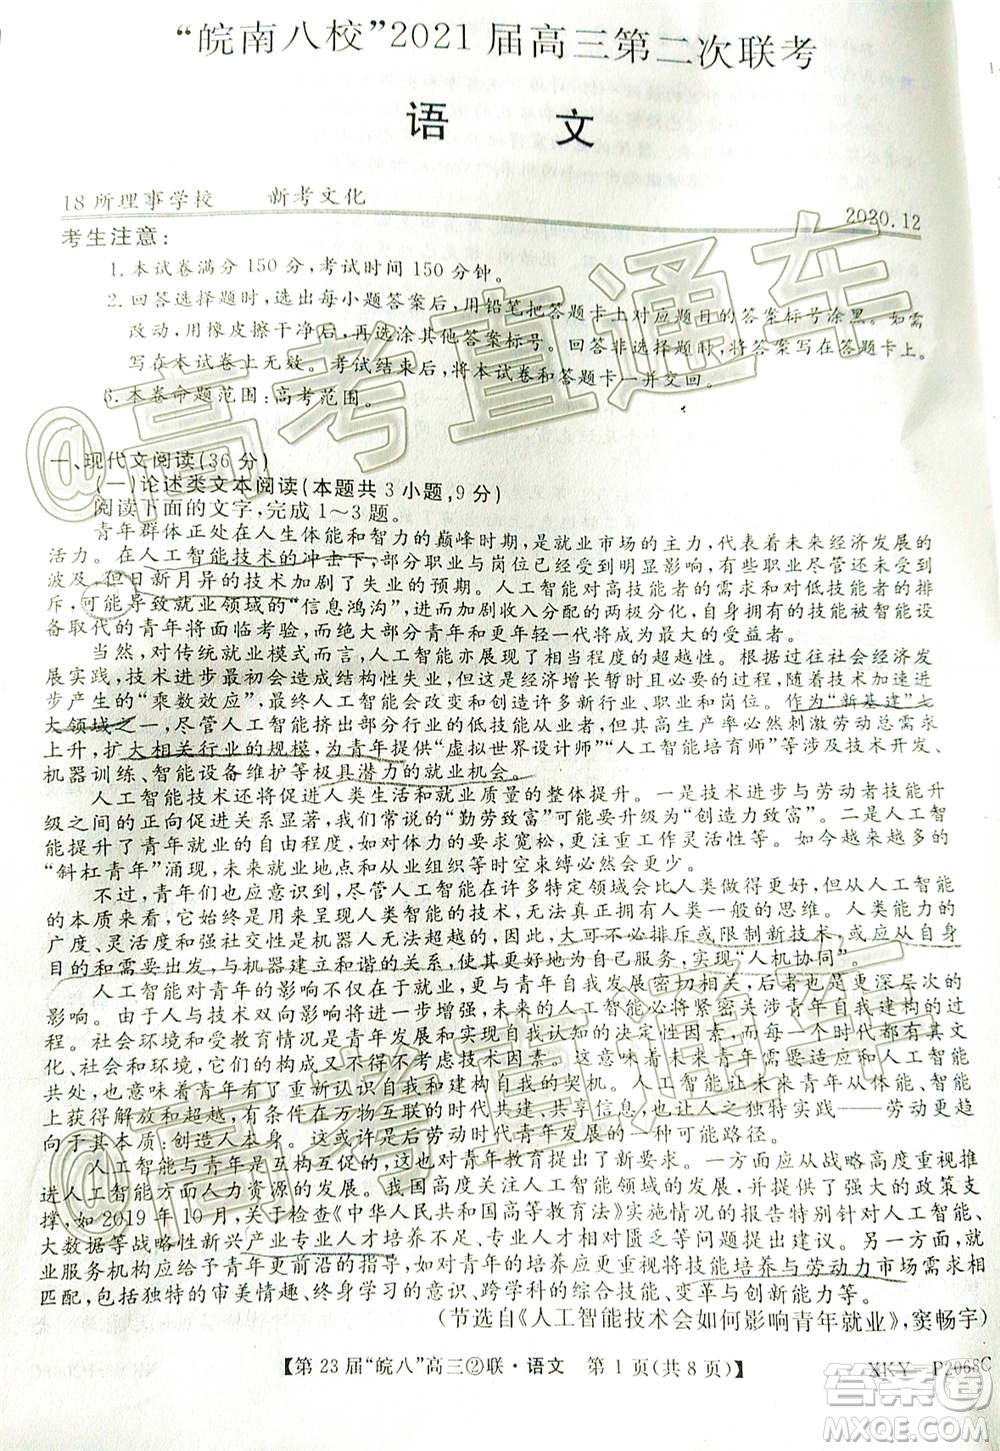 “皖南八校”2021届高三第二次联考
语 文
18所理事学校 新考文化 2020.12
考生注意:
1.本试卷满分150分,考试时间150分钟。
2.回答选择题时,选出每小题答案后,用铅笔把答题卡上对应题目的答案标号涂黑。如需
改动,用橡皮擦干净后,再选涂其他答案标号。回答非选择题时,将答案写在答题卡上。
写在本试卷上无效。考试结束后,将本试卷和答题卡一并交回。
本卷命题范围:高考范围。
一、现代文阅读(36分)
(一)论述类文本阅读(本题共3小题,9分)
阅读下面的文字,完成1~3题。
青年群体正处在人生体能和智力的巅峰时期,是就业市场的主力,代表着未来经济发展的
活力。在人工智能技术的冲击下,部分职业与岗位已经受到明显影响,有些职业尽管还未被
波及,但日新月异的技术加剧了失业的预期。人工智能对高技能者的需求和对低技能者的排
斥,可能导致就业领域的“信息鸿沟”,进而加剧收入分配的两极分化,自身拥有的技能被智能设
备取代的青年将面临考验,而绝大部分青年和更年轻一代将可能成为最大的受益者。
当然,对传统就业模式而言,人工智能亦展现了相当程度的超越性。根据过往社会经济发
展实践,技术进步最初会造成结构性失业,但这一经济增长暂时且必要的过程。随着技术加速进
步产生的“乘数效应”,最终人工智能会改变和创造许多新行业、职业和岗位。作为“新基建”七
大领域之一,尽管人工智能挤出部分行业的低技能从业者,但其高生产率必然刺激劳动总需求
上升,扩大相关行业的规模,为青年提供“虚拟世界设计师”“人工智能培育师”等涉及技术开发、
机器训练、智能设备维护等极具潜力的就业机会。
人工智能技术还将促进人类生活和就业质量的整体提升。一是技术进步与劳动者技能升
级之间的正向促进关系显著,我们未来的“勤劳致富”可能要升级为“创造力致富”。二是人工智
能提升了青年就业的自由程度,如对体力的要求宽松,更注重工作灵活性等。如今越来越多的
“斜杠青年”涌现,说明未来就业地点和从业组织等时空束缚必然会更少。
不过,青年们也应意识到,尽管人工智能在许多特定领域会比人类做得更好,但从人工智能
的本质来看,它始终是用来呈现人类智能的技术,无法真正拥有人类一般的思维。人类能力的
广度、灵活度和强社交性是机器人无法超越的,因此,大可不必排斥或限制新技术,或应从自身
目的和需要出发,与机器人建立和谐的关系,使其更好地为自己服务,实现“人机协同”。
人工智能对青年的影响不仅限于就业,还与青年的自我发展密切相关,存在着更深层次的
影响。由于人与技术双向影响的历史将进一步增强,人工智能必将紧密关涉青年自我建构的历
程。社会环境和受教育情况是青年发展和实现自我认知的决定性因素,而每个时代都有其文
化、社会和环境,它们的构成又不得不考虑技术因素。这表明未来青年需要适应和人工智能
共处,也意味着青年在重新认识自我和自我建构的过程中,需要在与人工智能的相互关系
上获得解放和超越,有条件在万物互联的时代共建、共创和共享,让人之独特实践——劳动更趋
向于其本质:创造人本身。这或许是后劳动时代青年发展的一种可能路径。
人工智能与青年是互构互促的,这对青年教育提出了新要求。一方面应从战略高度重视推
进人工智能方面人力资源的发展。我国高度关注人工智能领域的发展,并给予了强大的政策支
撑,如2019年10月,关于检查《中华人民共和国高等教育法》实施情况的报告特别针对人工智能、
大数据等战略性新兴产业专业人才培养不足、专业人才相对匮乏等问题提出建议。另一方面,就
业服务机构应给予青年更前沿的培训,对青年的培养应更重视技能培养与劳动力市场需求相
匹配,包括独特的审美情趣、终身学习的意识、跨学科的综合技能、变革与创新能力等。
(节选自《人工智能技术会如何影响青年就业》,窦畅宇)
【第23届“皖八”高三②联·语文 第1页(共8页)】 XKY—P2068C
@高考直通车
@高考直通车
答案圈
MXQE.COM